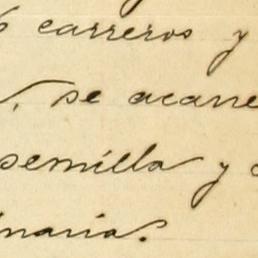 carreros y
se acarre
semilla y
inaria.